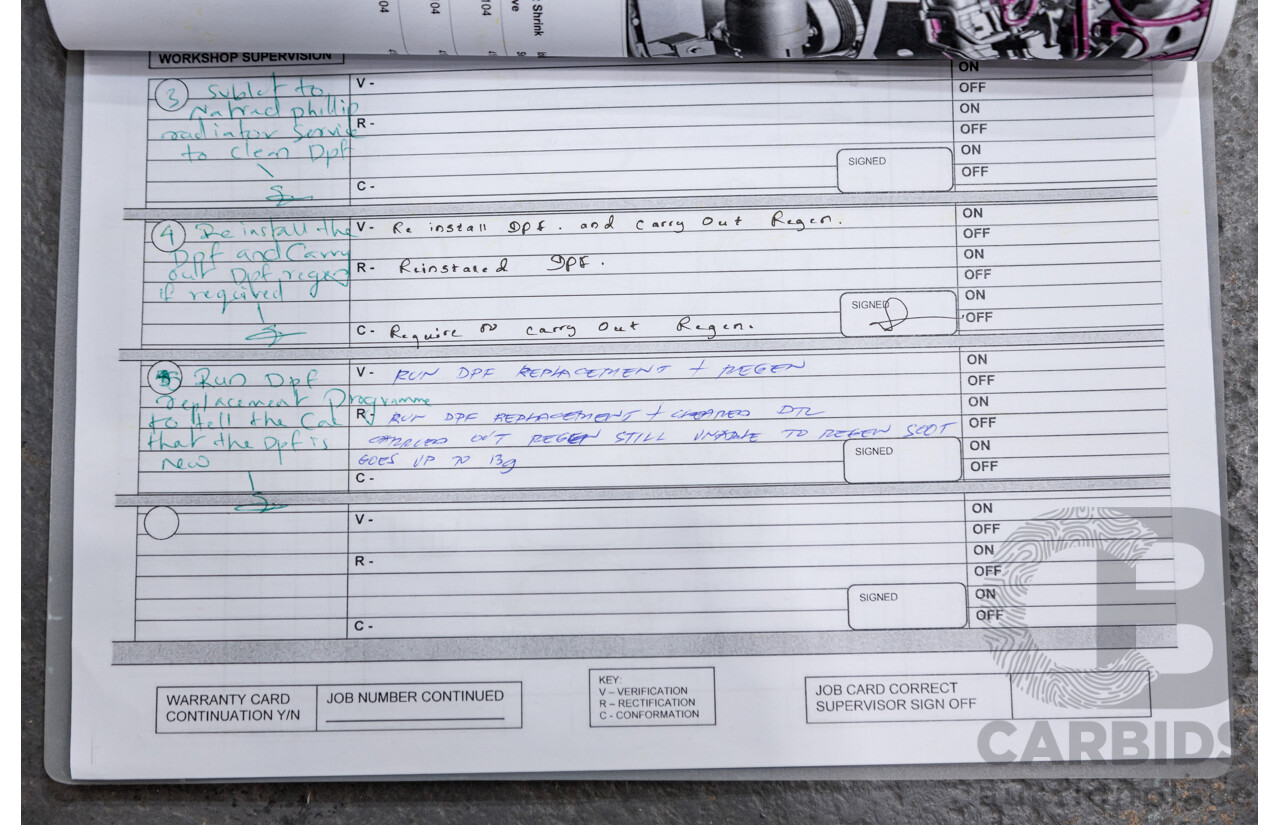 : Shrink
ve
104
104
104
WORKSHOP SUPERVISION
3 Sublet to
Natrad phillip
radiator Service
to Clean Dpf
V -
R -
C -
SIGNED
ON
OFF
ON
OFF
ON
OFF
4 Re install the
Dpf and Carry
out Dpf regen
if required
V - Re install DPF. and carry Out Regen.
R - Reinstaled DPF.
C - Require to carry Out Regen.
SIGNED
ON
OFF
ON
OFF
ON
OFF
5 Run Dpf
replacement Programme
to tell the Car
that the Dpf is
new
V - RUN DPF REPLACEMENT + REGEN
R - RUN DPF REPLACEMENT + CLEARED DTC
CARRIED OUT REGEN STILL UNABLE TO REGEN SOOT
GOES UP TO 13g
C -
SIGNED
ON
OFF
ON
OFF
ON
OFF
V -
R -
C -
SIGNED
ON
OFF
ON
OFF
ON
OFF
WARRANTY CARD
CONTINUATION Y/N
JOB NUMBER CONTINUED
KEY:
V – VERIFICATION
R – RECTIFICATION
C - CONFORMATION
JOB CARD CORRECT
SUPERVISOR SIGN OFF
CARBIDS